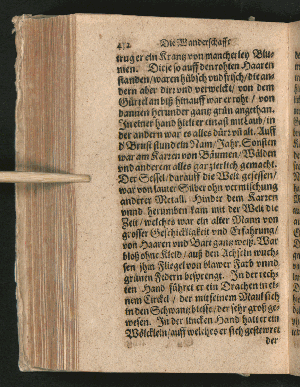 412 Die Wanderschafft
trug er ein Krantz von mancherley Blu-
men. Diese so auff den rohten Haaren
standen / waren hübsch vnd frisch / die an-
dern aber dürr vnd verwelckt / von dem
Gürtel an biß hinauff war er roht / von
dannen herunder gantz grün angethan.
In einer hand hielt er ein ast mit Laub / in
der andern war es alles dürr vñ alt. Auff
d Brust stund ein Nam / Jahr. Sonsten
war am Karren von Bäumen / Wälden
vnd anderem alles gar zierlich gemacht.
Der Sessel / darauff die Welt gesessen /
war von lauter Silber ohn vermischung
anderer Metall. Hinder dem Karren
vnnd herumben kam mit der Welt die
Zeit / welches war ein alter Mann von
grosser Geschickligkeit vnd Erfahrung /
von Haaren vnd Bart gantz weiß. War
bloß ohne Kleid / auß den Achseln wuch-
sen jhm Flügel von blawer Farb vnnd
grünen Federn besprengt. In der rech-
ten Hand führet er ein Drachen in ei-
nem Circkel / der mit seinem Maul sich
in den Schwantz bisse / der sehr groß ge-
wesen. In der lincken Hand hatt er ein
Wölcklein / auff welches er sich gestewret
der